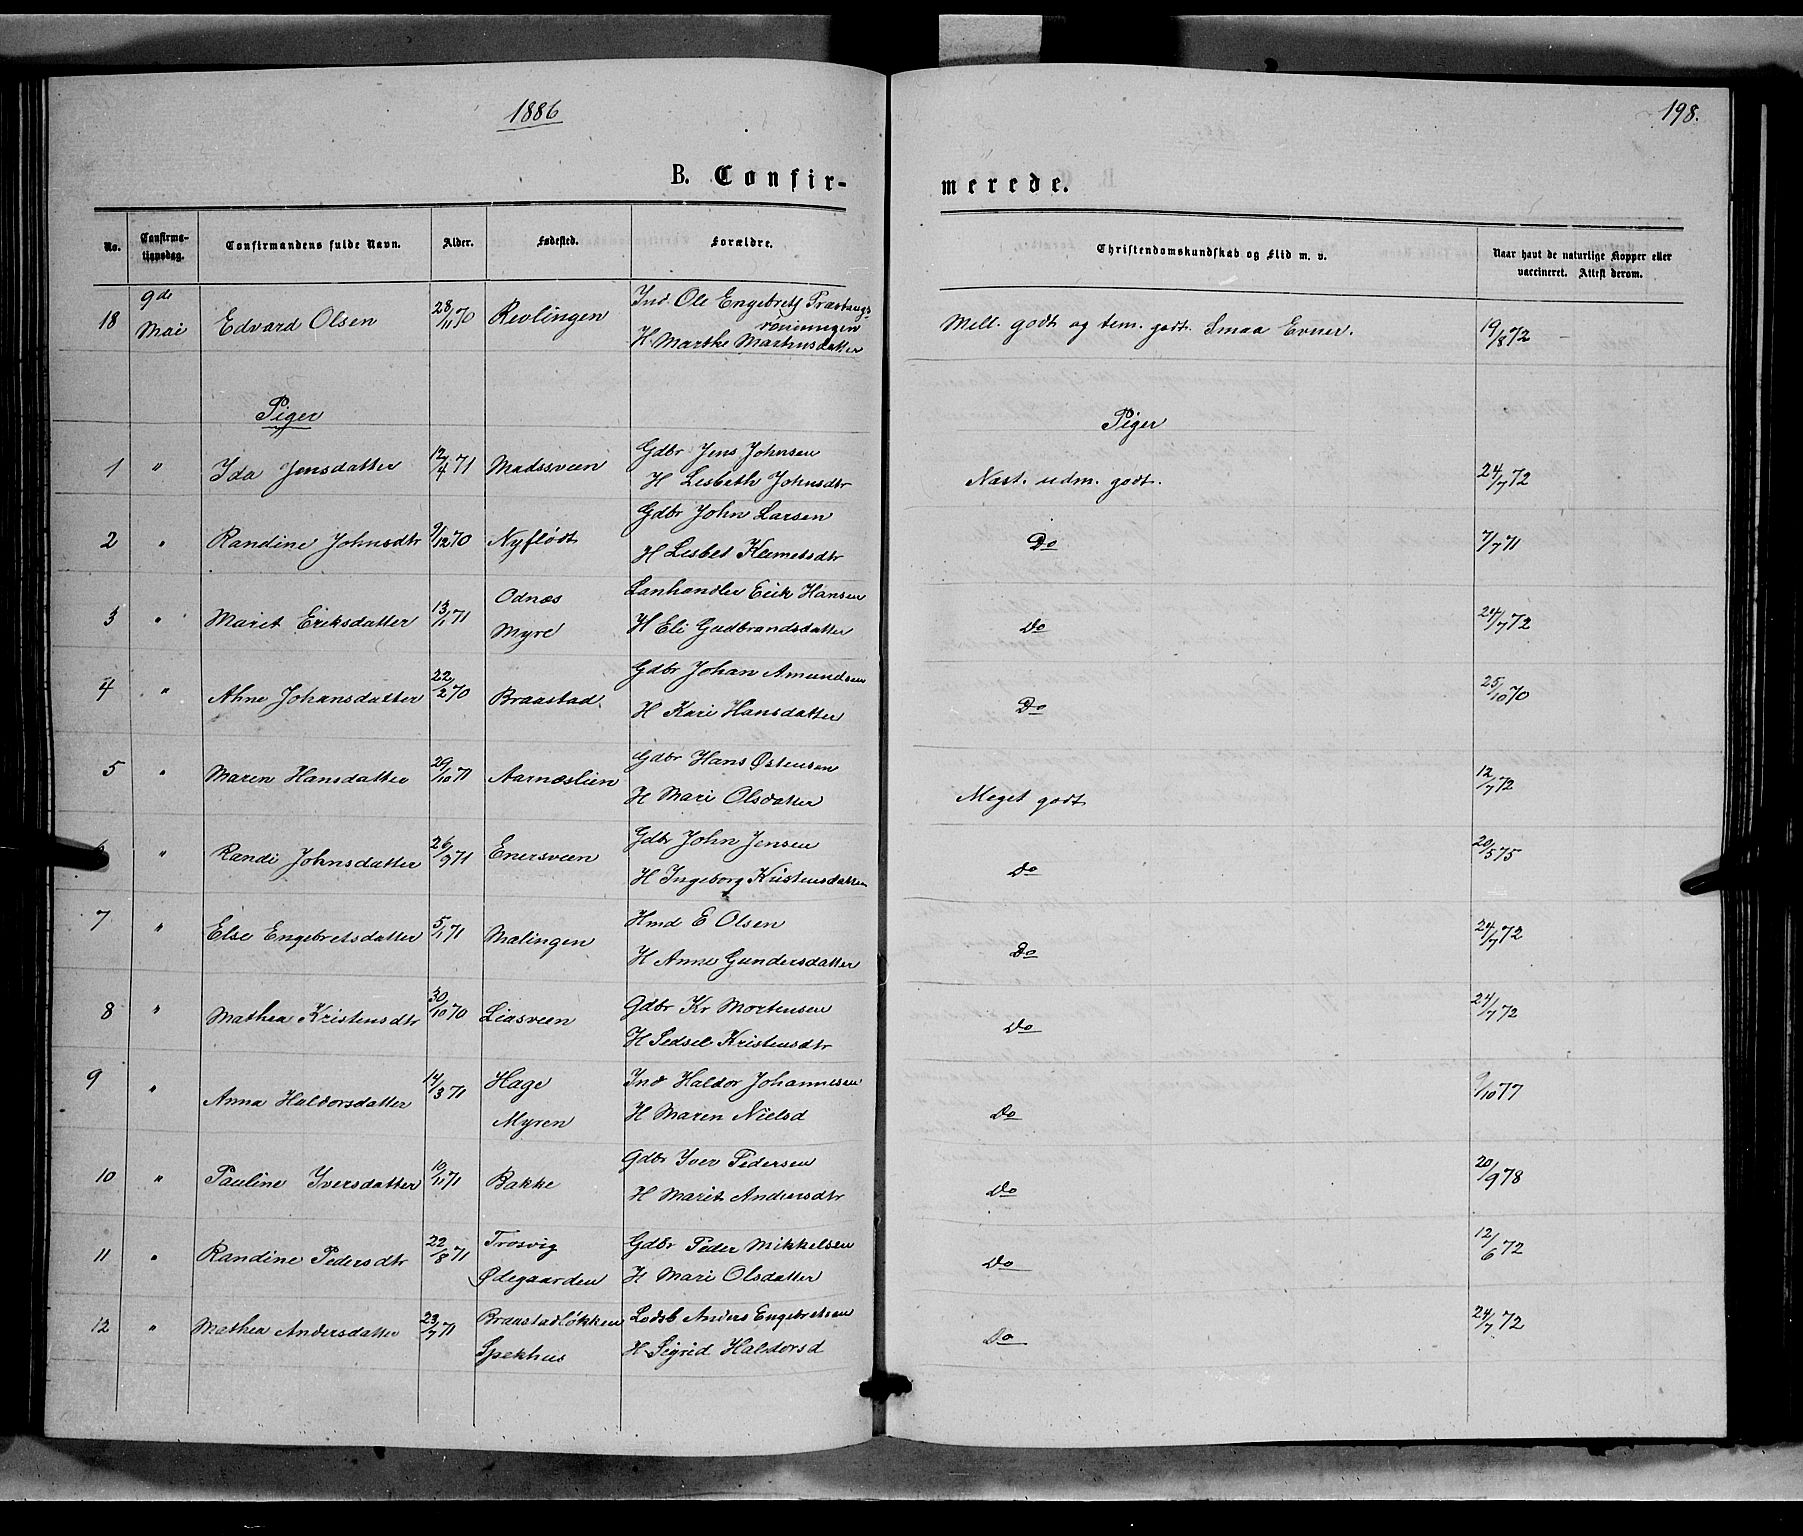 1886
198.
B. Confir-
merede.
No.
Confirma-
tionsdag.
Confirmandens fulde Navn.
Alder.
Fødested.
Forældre.
Christendomskundskab og Flid m. v.
Naar havt de naturlige Kopper eller
vaccineret. Attest derom.
18 9de Mai Edvard Olsen 28/11 70 Revlingen Ind. Ole Engebrets
H. Marthe Mathusdatter
Mell. godt og tem. godt. Smaa Evner. 19/8 72
Piger
Piger
1 " Ida Jensdatter 12/4 71 Madssveen Gdbr Jens Johnsen
H Lisbeth Johnsdtr
Næst. udm. godt. 24/7 72
2 " Randine Johnsdtr 9/12 70 Nyflødt Gdbr John Larsen
H Lisbet
Do 7/7 71
3 " Marit Eriksdatter 13/1 71 Odnæs
Myre
Lanhandler Erik Hansen
H Eli Gudbrandsdatter
Do 24/7 72
4 " Ahne Johansdatter 22/2 70 Braastad Gdbr Johan Amundsen
H Kari Hansdatter
Do 25/10 70
5 " Maren Hansdatter 29/10 71 Aarnæslien Gdbr Hans Østensen
H Mari Olsdatter
Meget godt 12/7 72
6 " Randi Johnsdatter 26/9 71 Enersveen Gdbr John Jensen
H Ingeborg Kristensdatter
Do 20/5 75
7 " Else Engebretsdatter 5/1 71 Mælingen Hmd E Olsen
H Anne Gundersdatter
Do 24/7 72
8 " Mathea Kristensdtr 30/10 70 Liasveen Gdbr Kr Mortensen
H Sedsel Kristensdtr
Do 24/7 72
9 " Anna Haldorsdatter 14/3 71 Hage
Myren
Ind Haldor Johannesen
H Maren Nielsd
Do 9/10 77
10 " Pauline Iversdatter 19/11 71 Bakke Gdbr Iver Pedersen
H Marit Andersdtr
Do 20/9 78
11 " Randine Pedersdtr 22/8 71 Trosvig
Ødegaarden
Gdbr Peder Mikkelsen
H Mari Olsdatter
Do 12/6 72
12 " Mathea Andersdatter 23/7 71 Braastadløkken
Spekhus
Lodsb Anders Engebretsen
H Sigrid Haldorsd
Do 24/7 72